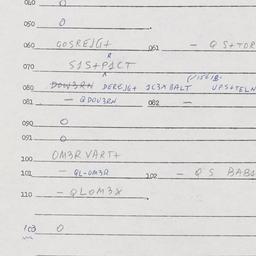 040 0
050 0
060 GOSREJG+ 061 - Q S+TOR
070 S1S+P1CT
080 DEREJG+ 1C3XBALT UPS+TELN
081 - QDOW3RN 082 -
090 0
091 0
100 OM3RVART+
101 - QL-OM3R 102 - Q S BABS
110 - QLOM3X
103 0